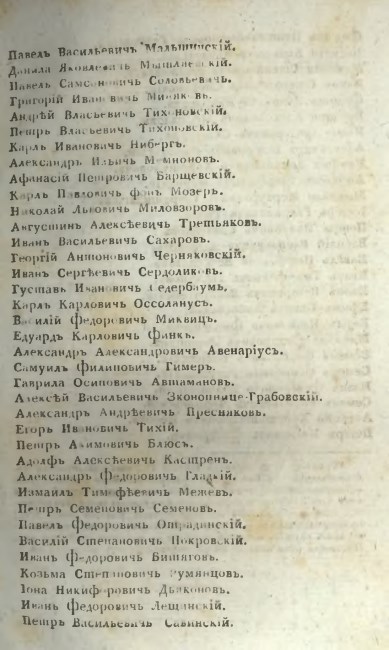 Павелъ Васильевичъ Малышинскій.
Данила Яковлевичъ Мышлаевскій.
Павелъ Самсоновичъ Соловьевичъ.
Григорій Ивановичъ Миняковъ.
Андрѣй Власьевичъ Тихоновскій.
Петръ Власьевичъ Тихоновскій.
Карлъ Ивановичъ Нибергъ.
Александръ Ильичъ Мемноновъ.
Афанасій Петровичъ Барщевскій.
Карлъ Павловичъ фонъ Мозеръ.
Николай Львовичъ Миловзоровъ.
Августинъ Алексѣевичъ Третьяковъ.
Иванъ Васильевичъ Сахаровъ.
Георгій Антоновичъ Черняковскій.
Иванъ Сергѣевичъ Сердоликовъ.
Густавъ Ивановичъ Ледербаумъ.
Карлъ Карловичъ Оссоланусъ.
Василій Федоровичъ Миквицъ.
Едуардъ Карловичъ Финкъ.
Александръ Александровичъ Авенаріусъ.
Самуилъ Филиповичъ Гимеръ.
Гаврила Осиповичъ Автамановъ.
Алексѣй Васильевичъ Экономице-Грабовскій.
Александръ Андрѣевичъ Пресняковъ.
Егоръ Ивановичъ Тихій.
Петръ Акимовичъ Блюсъ.
Адолфъ Алексѣевичъ Кастренъ.
Александръ Федоровичъ Гладкій.
Измаилъ Тимофѣевичъ Межевъ.
Петръ Семеновичъ Семеновъ.
Павелъ Федоровичъ Отрадинскій.
Василій Степановичъ Покровскій.
Иванъ Федоровичъ Битяговъ.
Козьма Степановичъ Румянцовъ.
Іона Никифоровичъ Дьаконовъ.
Иванъ Федоровичъ Лещинскій.
Петръ Васильевичъ Савинскій.